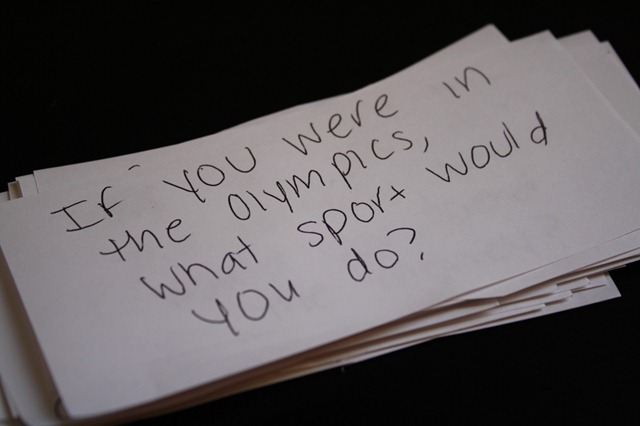 If you were in
the olympics,
what sport would
you do?